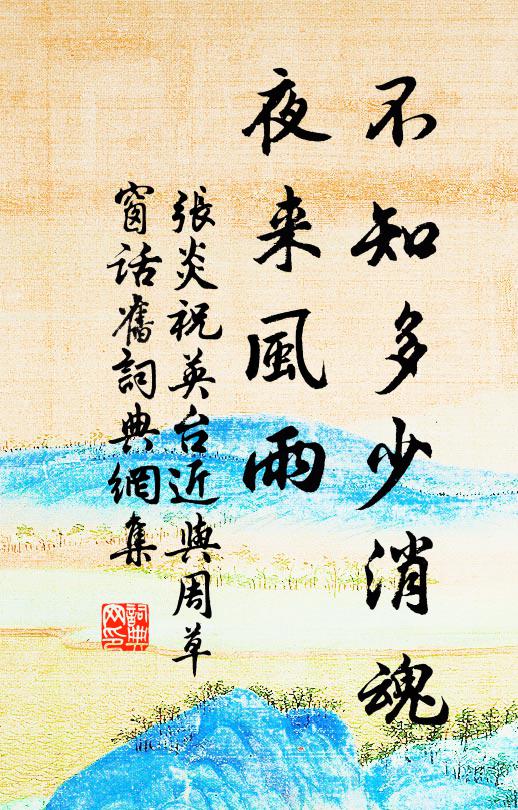 不知多少消魂
夜来風雨
張炎祝英台近與周草
窗話舊詞典網集
詞典
网印